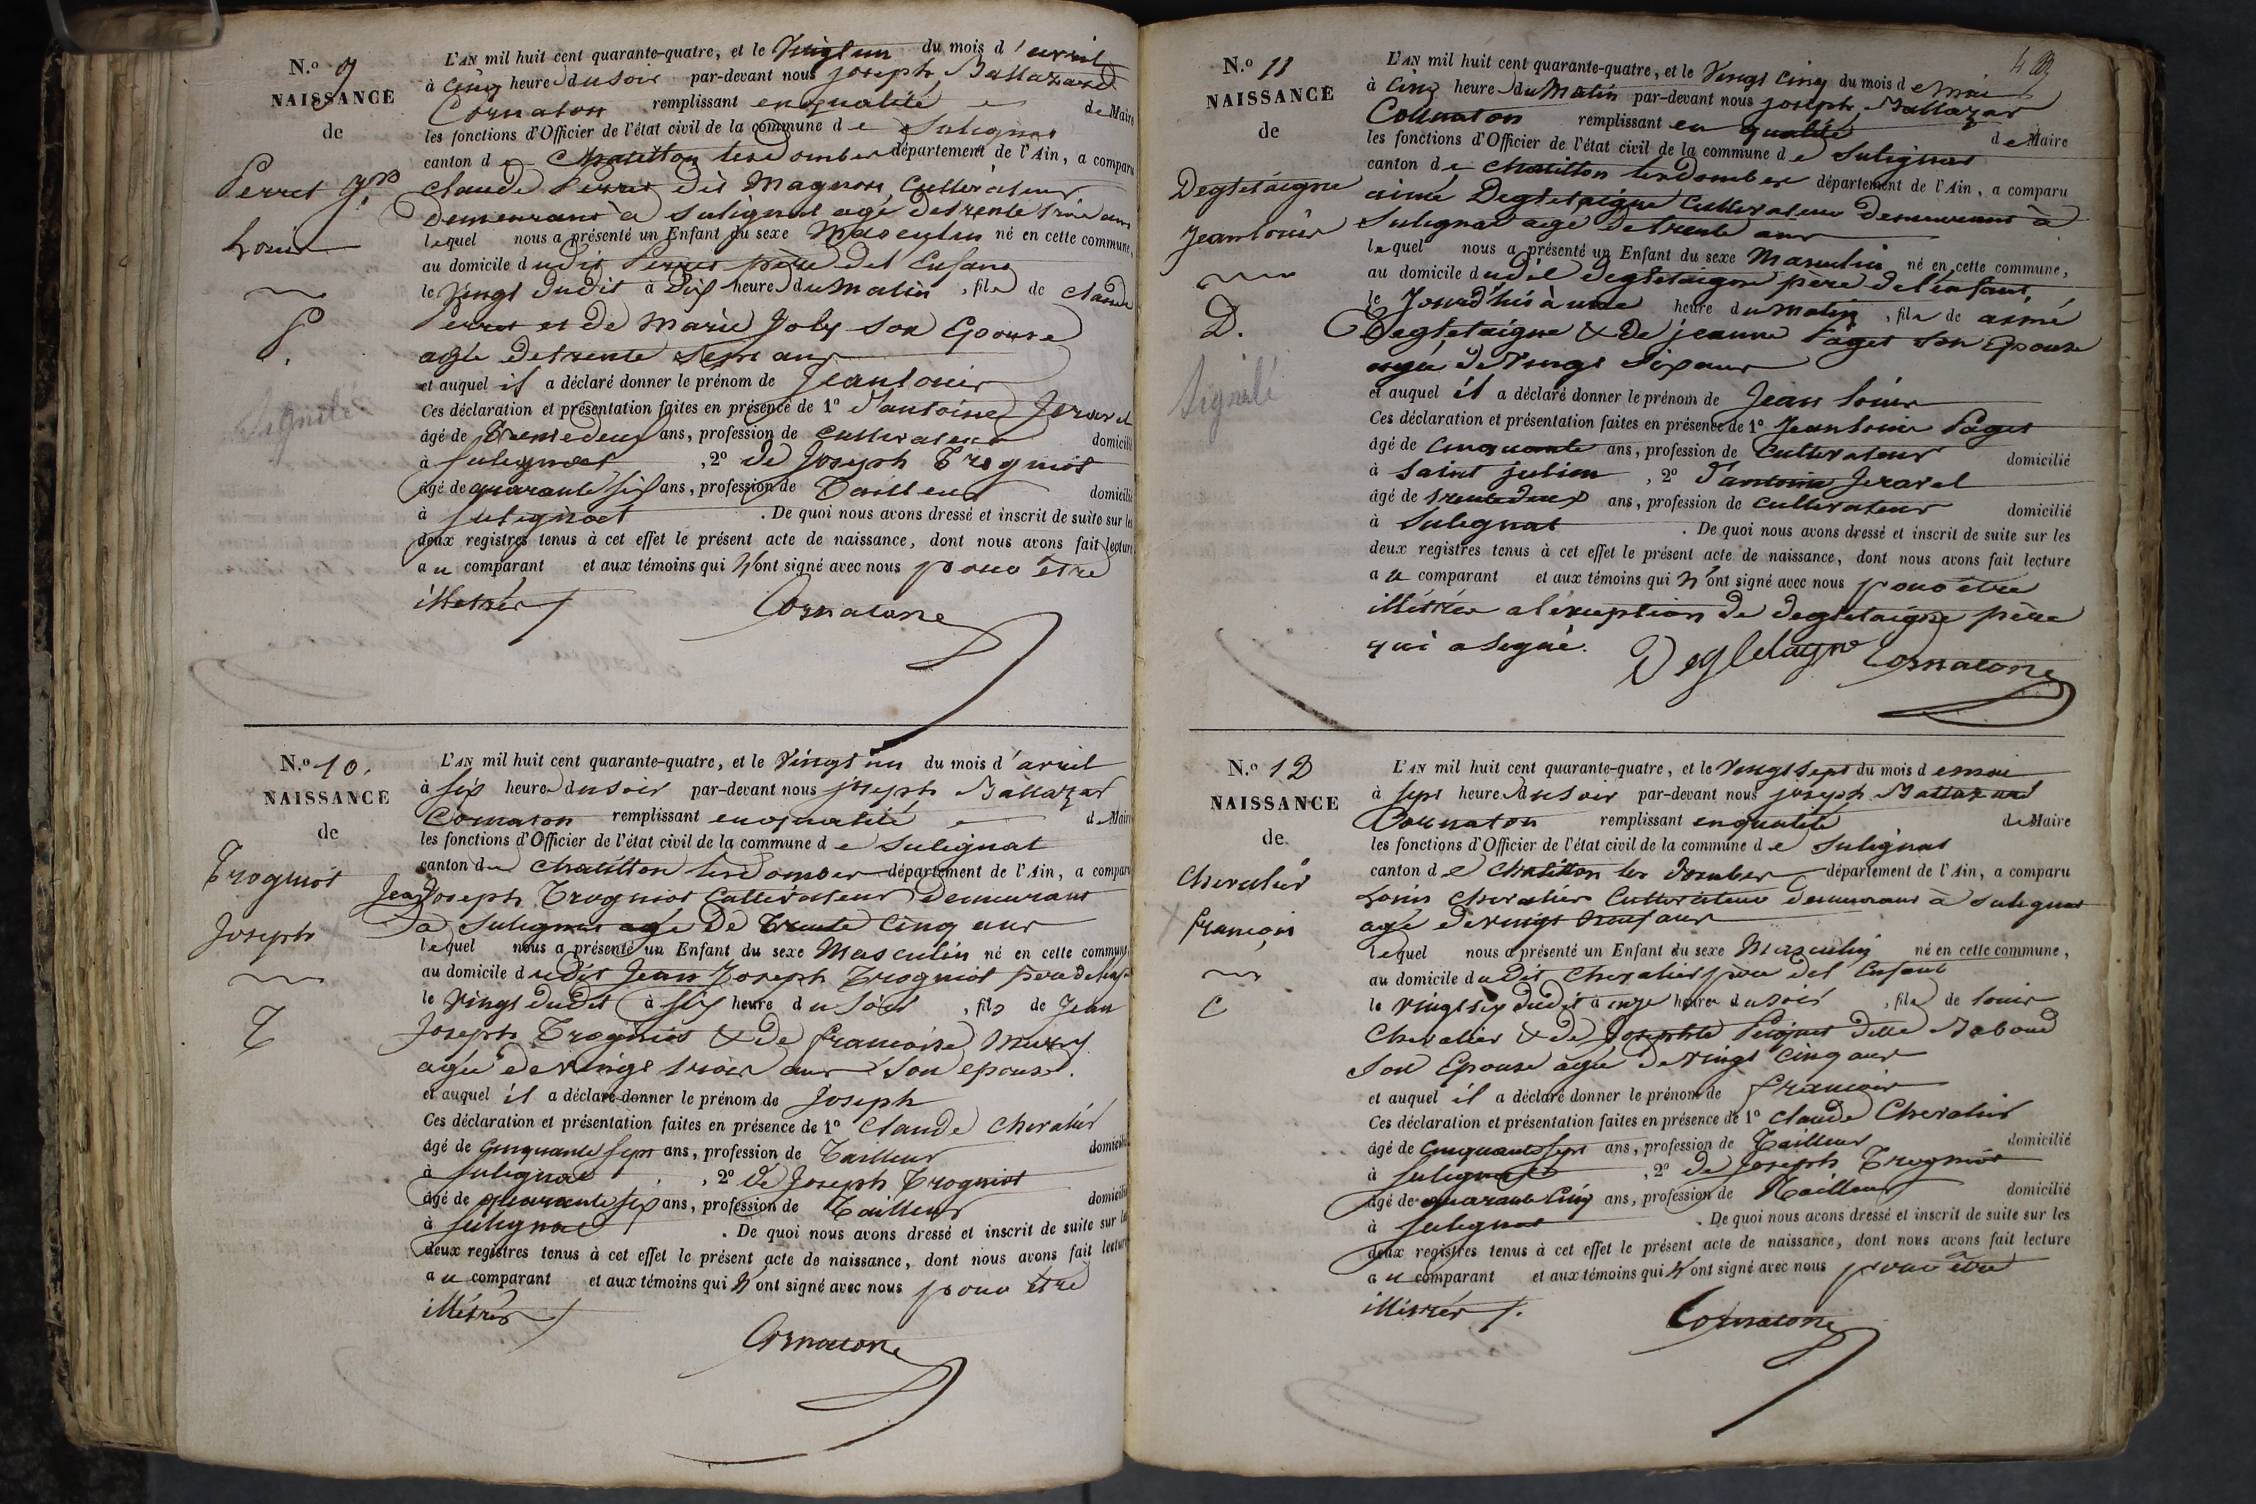 N.o 9
NAISSANCE
de
Perret
Louis
P.
L'AN mil huit cent quarante-quatre, et le Vingt un du mois d'avril
à cinq heure du soir par-devant nous joseph Baltazard
Cornaton remplissant en qualité de Maire
les fonctions d'Officier de l'état civil de la commune de Sulignat
canton de Chatillon les Dombes département de l'Ain, a comparu
Claude Perret dit Magnon Cultivateur
Demeurant à Sulignat agé de trente trois ans
lequel nous a présenté un Enfant du sexe Masculin né en cette commune,
au domicile dudit Perret père del Enfant
le Vingt dudit à Dix heure du Matin, fils de Claude
Perret et de Marie Joly son Epouse
agée de trente sept ans
et auquel il a déclaré donner le prénom de Jean Louis
Ces déclaration et présentation faites en présence de 1o d'antoine Jeravel
âgé de trente deux ans, profession de Cultivateur domicilié
à Sulignat, 2o de Joseph Trogniot
âgé de quarante six ans, profession de Tailleur domicilié
à Sulignat. De quoi nous avons dressé et inscrit de suite sur les
deux registres tenus à cet effet le présent acte de naissance, dont nous avons fait lecture
au comparant et aux témoins qui n'ont signé avec nous pour être
illétrés
Cornaton
N.o 10.
NAISSANCE
de
Trogniot
Joseph
T
L'AN mil huit cent quarante-quatre, et le Vingt un du mois d'avril
à six heure du soir par-devant nous joseph Baltazar
Cornaton remplissant en qualité de Maire
les fonctions d'Officier de l'état civil de la commune de Sulignat
canton de Chatillon les Dombes département de l'Ain, a comparu
Jean Joseph Trogniot Cultivateur Demeurant
à Sulignat agé De trente Cinq ans
lequel nous a présenté un Enfant du sexe Masculin né en cette commune,
au domicile dudit Jean Joseph Trogniot père del enfant
le Vingt dudit à six heure du soir, fils de Jean
Joseph Trogniot & de francoise Mury
agée de vingt trois ans Son epouse.
et auquel il a déclaré donner le prénom de Joseph
Ces déclaration et présentation faites en présence de 1o Claude Chevalier
âgé de Cinquante sept ans, profession de Tailleur domicilié
à Sulignat, 2o de Joseph Trogniot
âgé de quarante six ans, profession de Tailleur domicilié
à Sulignat. De quoi nous avons dressé et inscrit de suite sur les
deux registres tenus à cet effet le présent acte de naissance, dont nous avons fait lecture
au comparant et aux témoins qui n'ont signé avec nous pour être
illétrés
Cornaton
N.o 11
NAISSANCE
de
Degletaigne
Jean louis
D.
L'AN mil huit cent quarante-quatre, et le Vingt cinq du mois de mai
à Cinq heure du Matin par-devant nous joseph Baltazar
Cornaton remplissant en qualité de Maire
les fonctions d'Officier de l'état civil de la commune de Sulignat
canton de Chatillon les Dombes département de l'Ain, a comparu
aimé Degletaigne Cultivateur demeurant à
Sulignat agé de trente ans
lequel nous a présenté un Enfant du sexe Masculin né en cette commune,
au domicile dudit Degletaigne père del enfant,
le Jourd'huis à une heure du matin, fils de aimé
Degletaigne & De jeanne Paget Son Epouse
agée de Vingt Six ans
et auquel il a déclaré donner le prénom de Jean louis
Ces déclaration et présentation faites en présence de 1o Jean louis Paget
âgé de Cinquante ans, profession de Cultivateur domicilié
à Saint julien, 2o d'antoine Jeravel
âgé de trente deux ans, profession de Cultivateur domicilié
à Sulignat. De quoi nous avons dressé et inscrit de suite sur les
deux registres tenus à cet effet le présent acte de naissance, dont nous avons fait lecture
au comparant et aux témoins qui n'ont signé avec nous pour être
illétrés a l'exception de Degletaigne père
qui a Signé.
Degletagne Cornaton
N.o 12
NAISSANCE
de
Chevalier
francois
C
L'AN mil huit cent quarante-quatre, et le Vingt sept du mois de mai
à sept heure du soir par-devant nous joseph Baltazard
Cornaton remplissant en qualité de Maire
les fonctions d'Officier de l'état civil de la commune de Sulignat
canton de Chatillon les Dombes département de l'Ain, a comparu
Louis Chevalier Cultivateur demeurant à Sulignat
agé de vingt neuf ans
lequel nous a présenté un Enfant du sexe Masculin né en cette commune,
au domicile dudit Chevalier père del Enfant
le Vingt six dudit à onze heure du soir, fils de louis
Chevalier & de Josephte ditte
Son Epouse agée de vingt cinq ans
et auquel il a déclaré donner le prénom de francois
Ces déclaration et présentation faites en présence de 1o Claude Chevalier
âgé de Cinquante sept ans, profession de Tailleur domicilié
à Sulignat, 2o de Joseph Trogniot
âgé de quarante Cinq ans, profession de Tailleur domicilié
à Sulignat. De quoi nous avons dressé et inscrit de suite sur les
deux registres tenus à cet effet le présent acte de naissance, dont nous avons fait lecture
au comparant et aux témoins qui n'ont signé avec nous pour être
illétrés
Cornaton